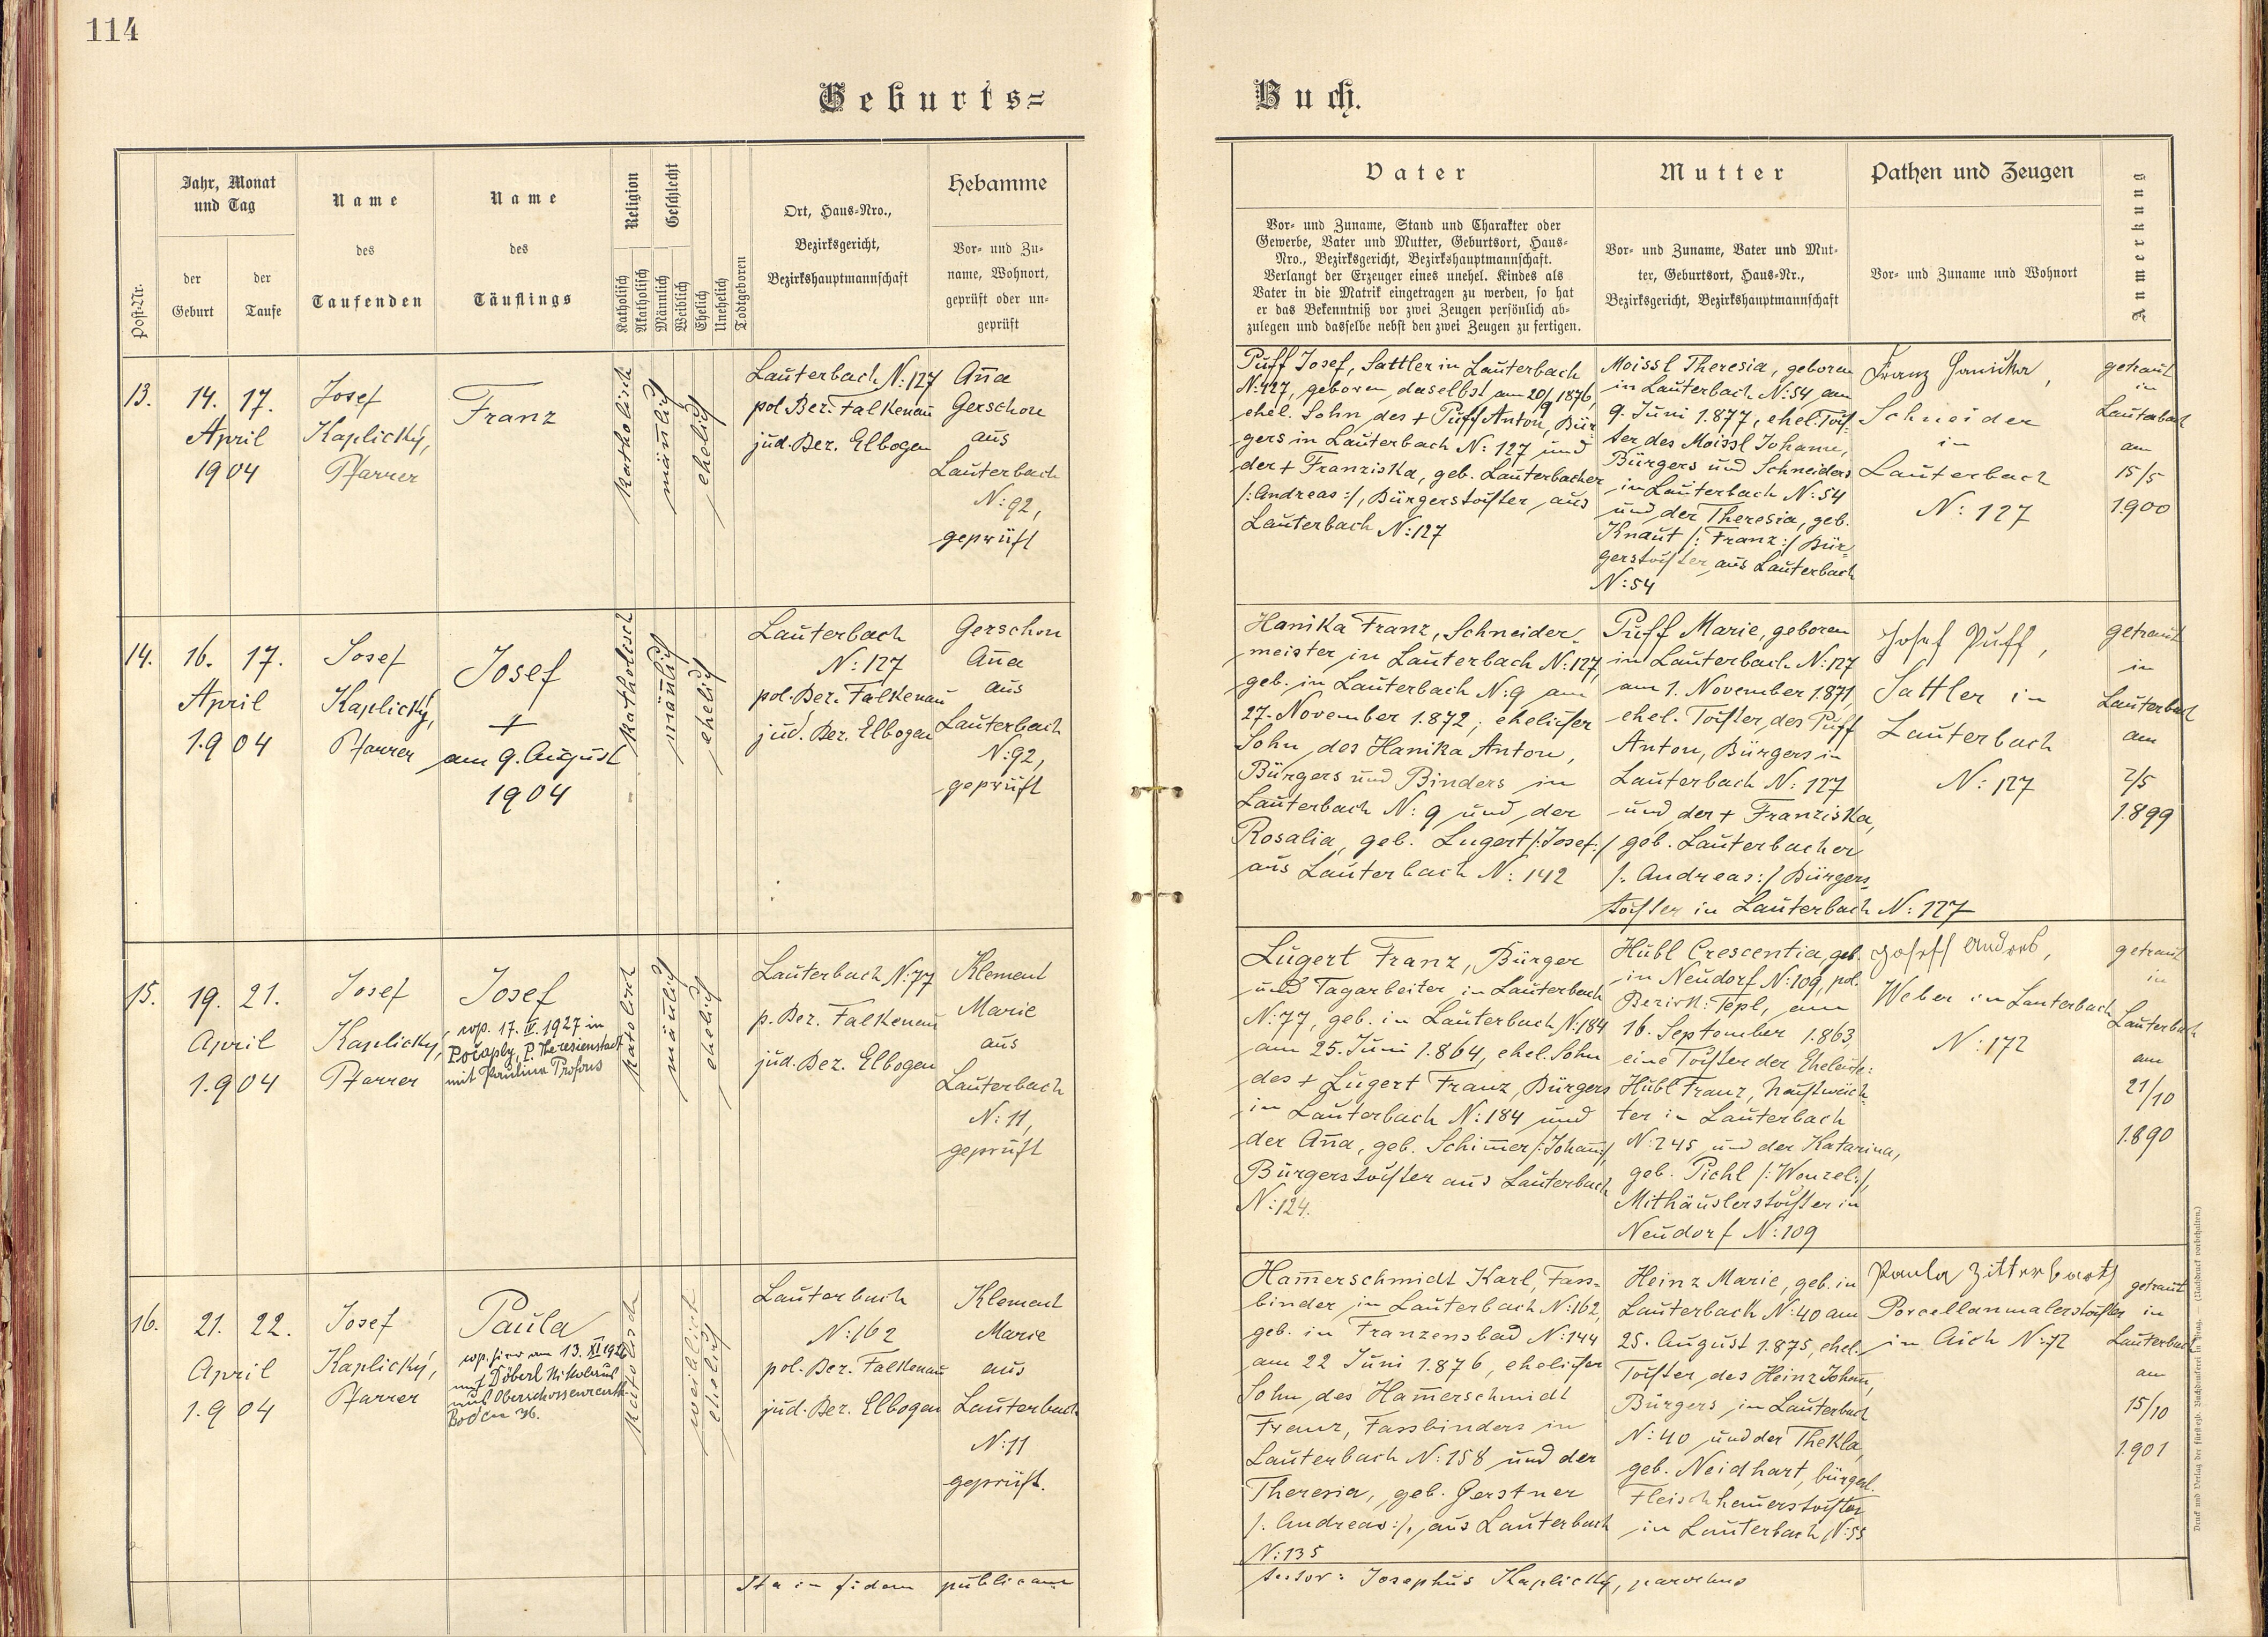 114
Geburts=
Buch.
Post-Nr.
Jahr, Monat
und Tag
der
Geburt
der
Taufe
Name
des
Taufenden
Name
des
Täuflings
Religion
Katholisch
Akatholisch
Geschlecht
Männlich
Weiblich
Ehelich
Unehelich
Todtgeboren
Ort, Haus-Nro.,
Bezirksgericht,
Bezirkshauptmannschaft
Hebamme
Vor- und Zu-
name, Wohnort,
geprüft oder un-
geprüft
Vater
Vor- und Zuname, Stand und Charakter oder
Gewerbe, Vater und Mutter, Geburtsort, Haus-
Nro., Bezirksgericht, Bezirkshauptmannschaft.
Verlangt der Erzeuger eines unehel. Kindes als
Vater in die Matrik eingetragen zu werden, so hat
er das Bekenntniß vor zwei Zeugen persönlich ab-
zulegen und dasselbe nebst den zwei Zeugen zu fertigen.
Mutter
Vor- und Zuname, Vater und Mut-
ter, Geburtsort, Haus-Nr.,
Bezirksgericht, Bezirkshauptmannschaft
Pathen und Zeugen
Vor- und Zuname und Wohnort
Anmerkung
13.
14. 17.
April
1904
Josef
Kaplický,
Pfarrer
Franz
katholisch
mäñlich
ehelich
Lauterbach N: 127
pol. Bez. Falkenau
jud. Bez. Elbogen
Aña
Gerschon
aus
Lauterbach
N: 92,
geprüft
Puff Josef, Sattler in Lauterbach
N: 127, geboren daselbst am 20/9 1876,
ehel. Sohn des + Puff Anton, Bür-
gers in Lauterbach N: 127 und
der + Franziska, geb. Lauterbacher
/: Andreas :/, Bürgerstochter aus
Lauterbach N: 127
Moissl Theresia, geboren
in Lauterbach N: 54 am
9. Juni 1877, ehel. Toch-
ter des Moissl Johann,
Bürgers und Schneiders
in Lauterbach N: 54
und der Theresia, geb.
Knaut /: Franz :/ Bür-
gerstochter aus Lauterbach
N: 54
Franz Hanika,
Schneider
in
Lauterbach
N: 127
getraut
in
Lauterbach
am
15/5
1900
14.
16. 17.
April
1904
Josef
Kaplický,
Pfarrer
Josef
+
am 9. August
1904
katholisch
mäñlich
ehelich
Lauterbach
N: 127
pol. Bez. Falkenau
jud. Bez. Elbogen
Gerschon
Aña
aus
Lauterbach
N: 92,
geprüft
Hanika Franz, Schneider-
meister in Lauterbach N: 127,
geb. in Lauterbach N: 9 am
27. November 1872, ehelicher
Sohn des Hanika Anton,
Bürgers und Binders in
Lauterbach N: 9 und der
Rosalia, geb. Lugert /: Josef :/
aus Lauterbach N: 142
Puff Marie, geboren
in Lauterbach N: 127
am 1. November 1871,
ehel. Tochter des Puff
Anton, Bürgers in
Lauterbach N: 127
und der + Franziska,
geb. Lauterbacher
/: Andreas :/ Bürgers-
tochter in Lauterbach N: 127
Josef Puff,
Sattler in
Lauterbach
N: 127
getraut
in
Lauterbach
am
2/5
1899
15.
19. 21.
April
1904
Josef
Kaplický,
Pfarrer
Josef
cop. 17. IV. 1927 in
Počaply, P. Theresienstadt
mit Paulina Profous
katolisch
mäñlich
ehelich
Lauterbach N: 77
p. Bez. Falkenau
jud. Bez. Elbogen
Klement
Marie
aus
Lauterbach
N: 11,
geprüft
Lugert Franz, Bürger
und Tagarbeiter in Lauterbach
N: 77, geb. in Lauterbach N: 184
am 25. Juni 1864, ehel. Sohn
des + Lugert Franz, Bürgers
in Lauterbach N: 184 und
der Aña, geb. Schimer /: Johañ :/,
Bürgerstochter aus Lauterbach
N: 124.
Hübl Crescentia, geb.
in Neudorf N: 109, pol.
Bezirk: Tepl, am
16. September 1863,
eine Tochter der Eheleute:
Hübl Franz, Nachtwäch-
ter in Lauterbach
N: 245 und der Katarina,
geb. Pichl /: Wenzel :/,
Mithäuslerstochter in
Neudorf N: 109
Josef Anders,
Weber in Lauterbach
N: 172
getraut
in
Lauterbach
am
21/10
1890
16.
21. 22.
April
1904
Josef
Kaplický,
Pfarrer
Paula
cop. hier am 13. XI 1926
mit Döberl Nikolaus
aus Oberschossenreuth
Boden 36.
katolisch
weiblich
ehelich
Lauterbach
N: 162
pol. Bez. Falkenau
jud. Bez. Elbogen
Klement
Marie
aus
Lauterbach
N: 11
geprüft.
Ham̃erschmidt Karl, Fass-
binder in Lauterbach N: 162,
geb. in Franzensbad N: 144
am 22 Juni 1876, ehelicher
Sohn des Ham̃erschmidt
Franz, Fassbinders in
Lauterbach N: 158 und der
Theresia, geb. Gerstner
/: Andreas :/, aus Lauterbach
N: 135
Heinz Marie, geb. in
Lauterbach N: 40 am
25. August 1875, ehel.
Tochter des Heinz Johañ,
Bürgers in Lauterbach
N: 40 und der Thekla,
geb. Neidhart, bürgerl.
Fleischhauerstochter
in Lauterbach N: 55
Paula Zitterbart,
Porcellanmalerstochter
in Aich N: 72
getraut
in
Lauterbach
am
15/10
1901
Ita in fidem publicam
testor: Josephus Kaplický, parochus
Druck und Verlag der fürsterzb. Buchdruckerei in Prag. — (Nachdruck vorbehalten.)